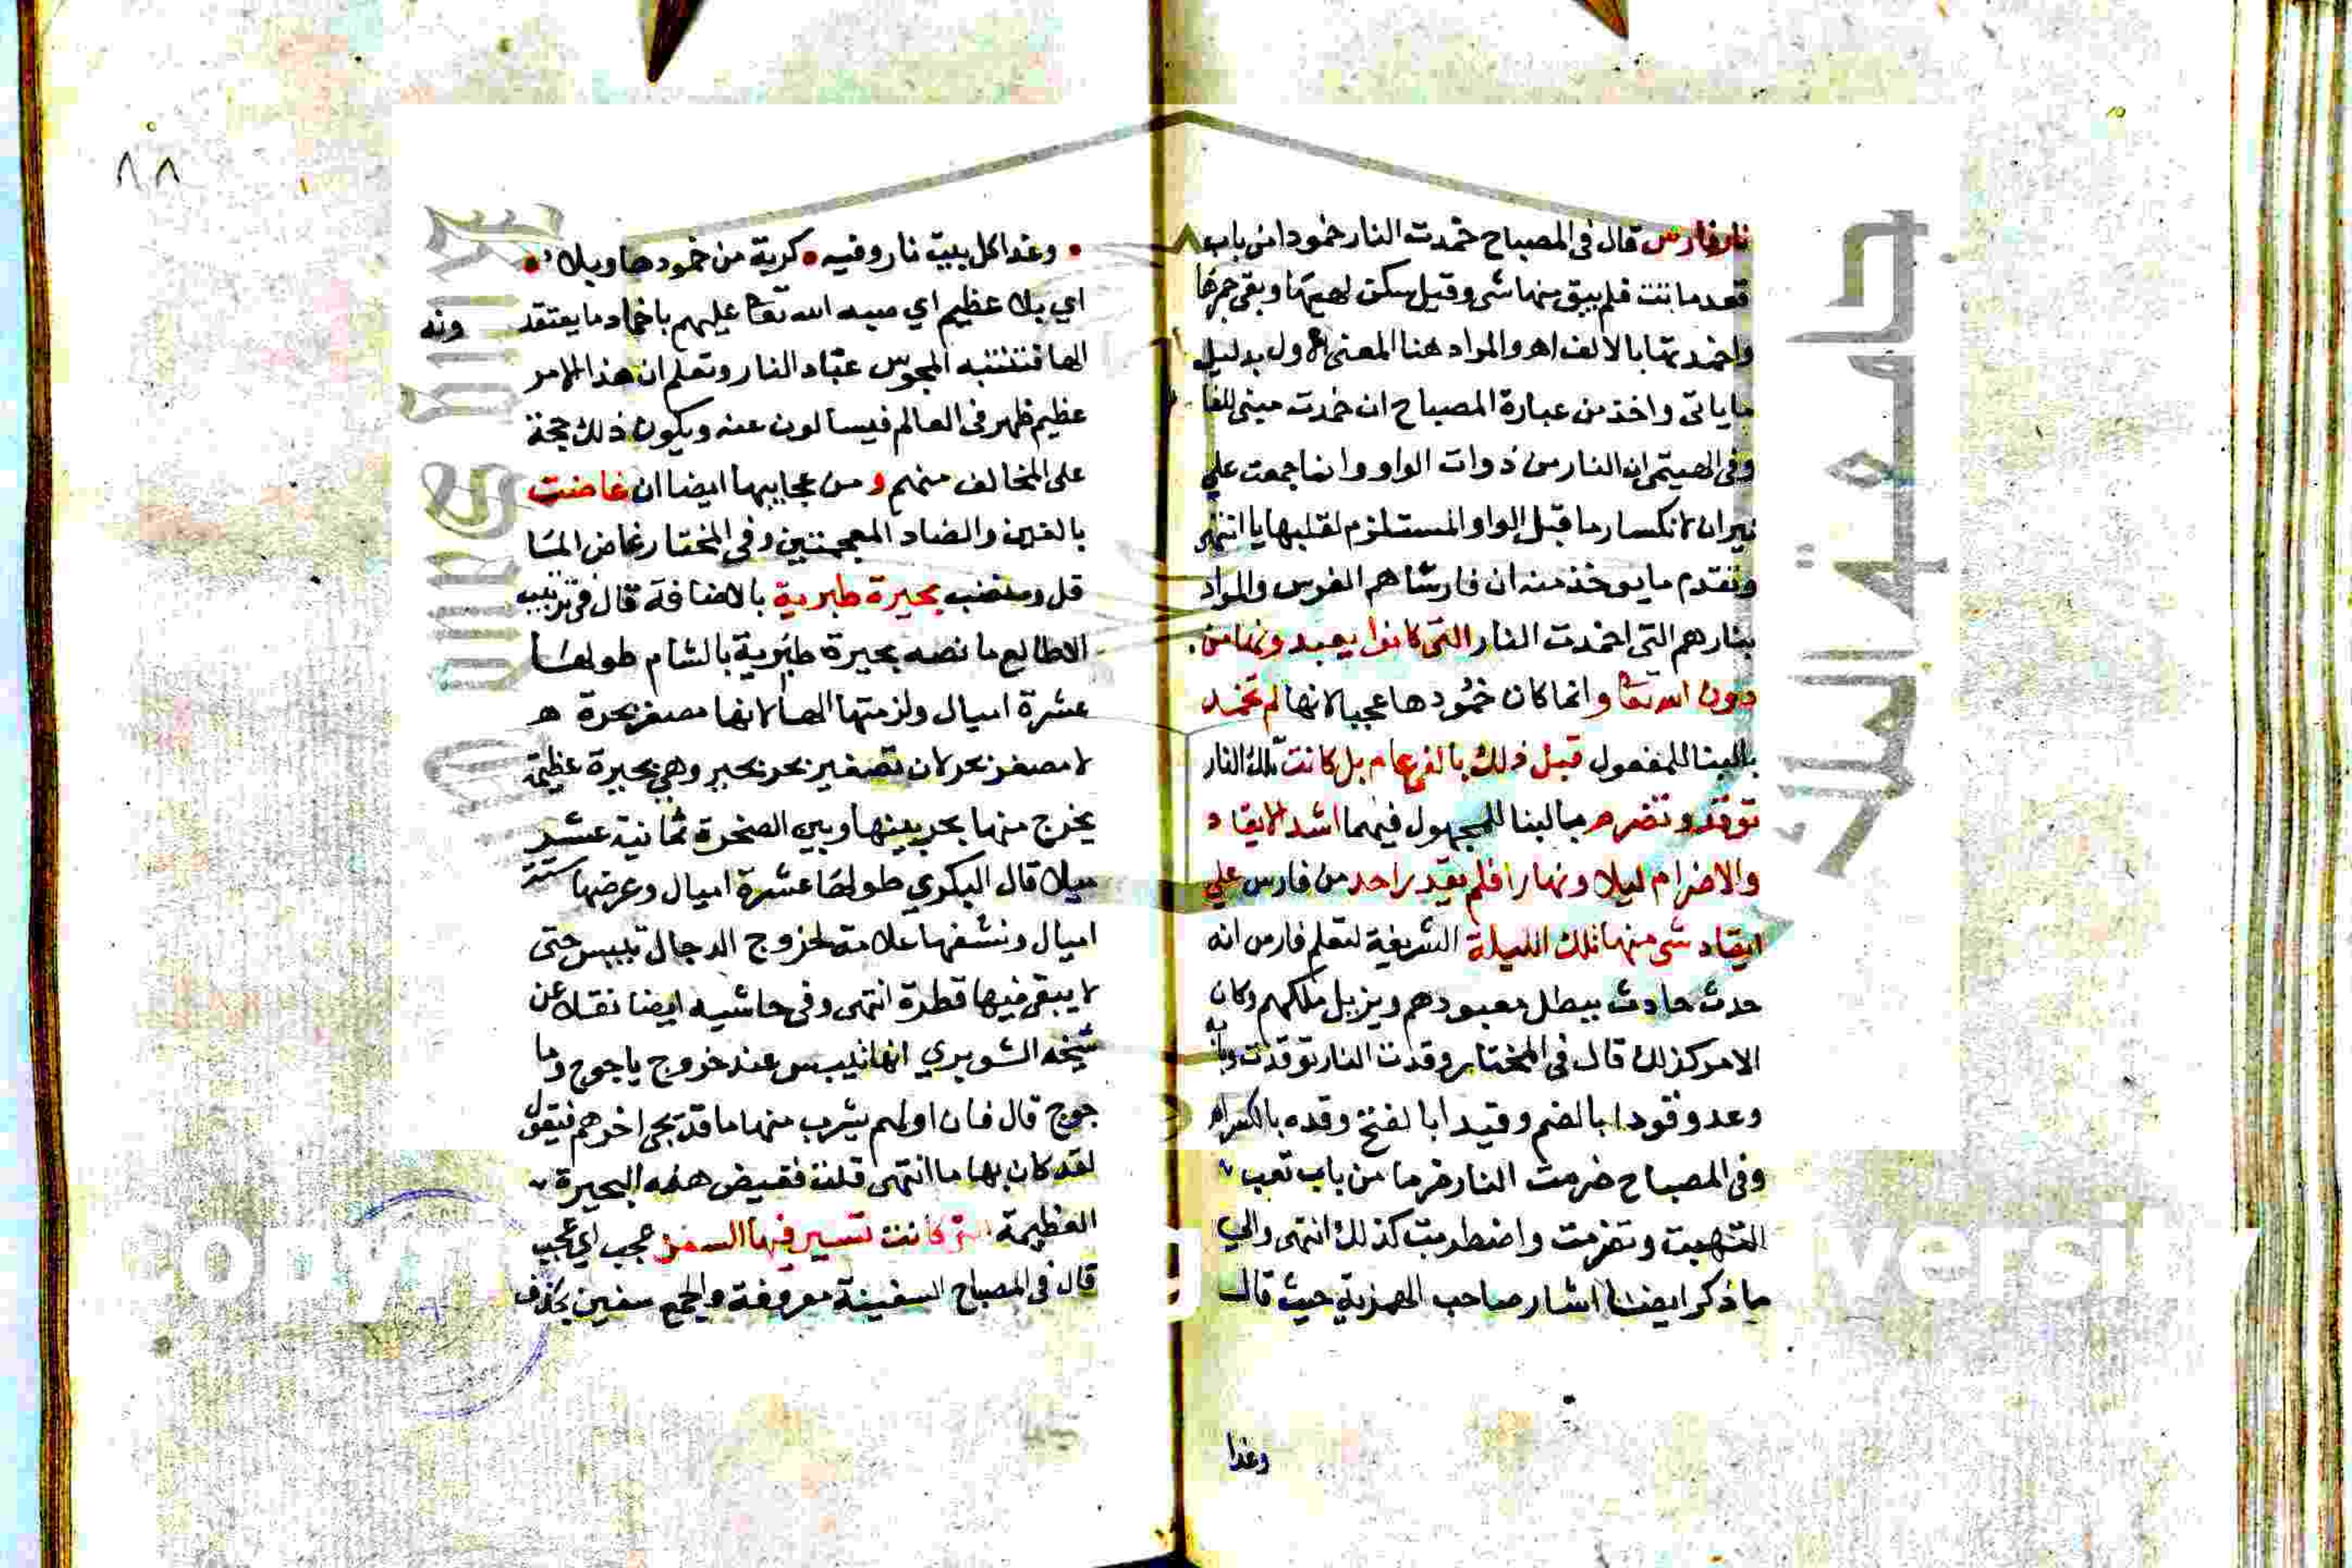 نار فارس قال في المصباح خمدت النار خمودا من باب
قعد ماتت فلم يبق منها شي وقيل سكن لهبها وبقي جمرها
واخمدتها بالالف اه والمراد هنا المعنى الاول بدليل
ما ياتي واخذ من عبارة المصباح ان خمدت مبني للفا
وفي الهيتمي ان النار من ذوات الواو وانما جمعت علي
نيران لانكسار ما قبل الواو المستلزم لقلبها يا انتهى
وتقدم ما يوخذ منه ان فارسا هم الفرس والمراد
بنارهم التي اخمدت النار التي كانوا يعبدونها من
دون الله تعا وانما كان خمودها عجبا لانها لم تخمد
بالبنا للمفعول قبل ذلك بالفي عام بل كانت تلك النار
توقد وتضرم بالبنا للمجهول فيهما اشد الايقاد
والاضرام ليلا ونهارا فلم يقدر احد من فارس علي
ايقاد شي منها تلك الليلة الشريفة لتعلم فارس انه
حدث حادث يبطل معبودهم ويزيل ملكهم وكان
الامر كذلك قال في المختار وقدت النار توقدت وبا
وعد وقودا بالضم وقيدا بالفتح وقده بالكسر اه
وفي المصباح ضرمت النار ضرما من باب تعب
التهبت وتضرمت واضطرمت كذلك انتهى والي
ما ذكر ايضا اشار صاحب الهمزية حيث قال
وغدا
٨٨
وغدا كل بيت نار وفيه كربة من خمودها وبلاء
اي بلا عظيم اي سببه الله تعا عليهم باخماد ما يعتقد
ونه
الها فتنتبه المجوس عباد النار وتعلم ان هذا الامر
عظيم ظهر في العالم فيسالون عنه ويكون ذلك حجة
على المخالف منهم ومن عجايبها ايضا ان غاضت
بالغين والضاد المعجمتين وفي المختار غاض الما
قل ونضب بحيرة طبرية بالاضافة قال في ترتيب
الاطالع ما نصه بحيرة طبرية بالشام طولها
عشرة اميال ولزمتها الها لانها مصغر بحرة
لا مصغر بحر لان تصغير بحر بحير وهي بحيرة عظيمة
يخرج منها بحر بينها وبين الصخرة ثمانية عشر
ميلا قال البكري طولها عشرة اميال وعرضها ستة
اميال ونشفها علامة لخروج الدجال تيبس حتى
لا يبقى فيها قطرة انتهى وفي حاشيه ايضا نقلا عن
شيخه الشوبري انها تيبس عند خروج ياجوج وما
جوج قال فان اولهم يشرب منها ما قد يجي اخرهم فيقول
لقد كان بها ما انتهى قلت فغيض هذه البحيرة
العظيمة التي كانت تسير فيها السفن عجب اي عجب
قال في المصباح السفينة معروفة والجمع سفين بحذف